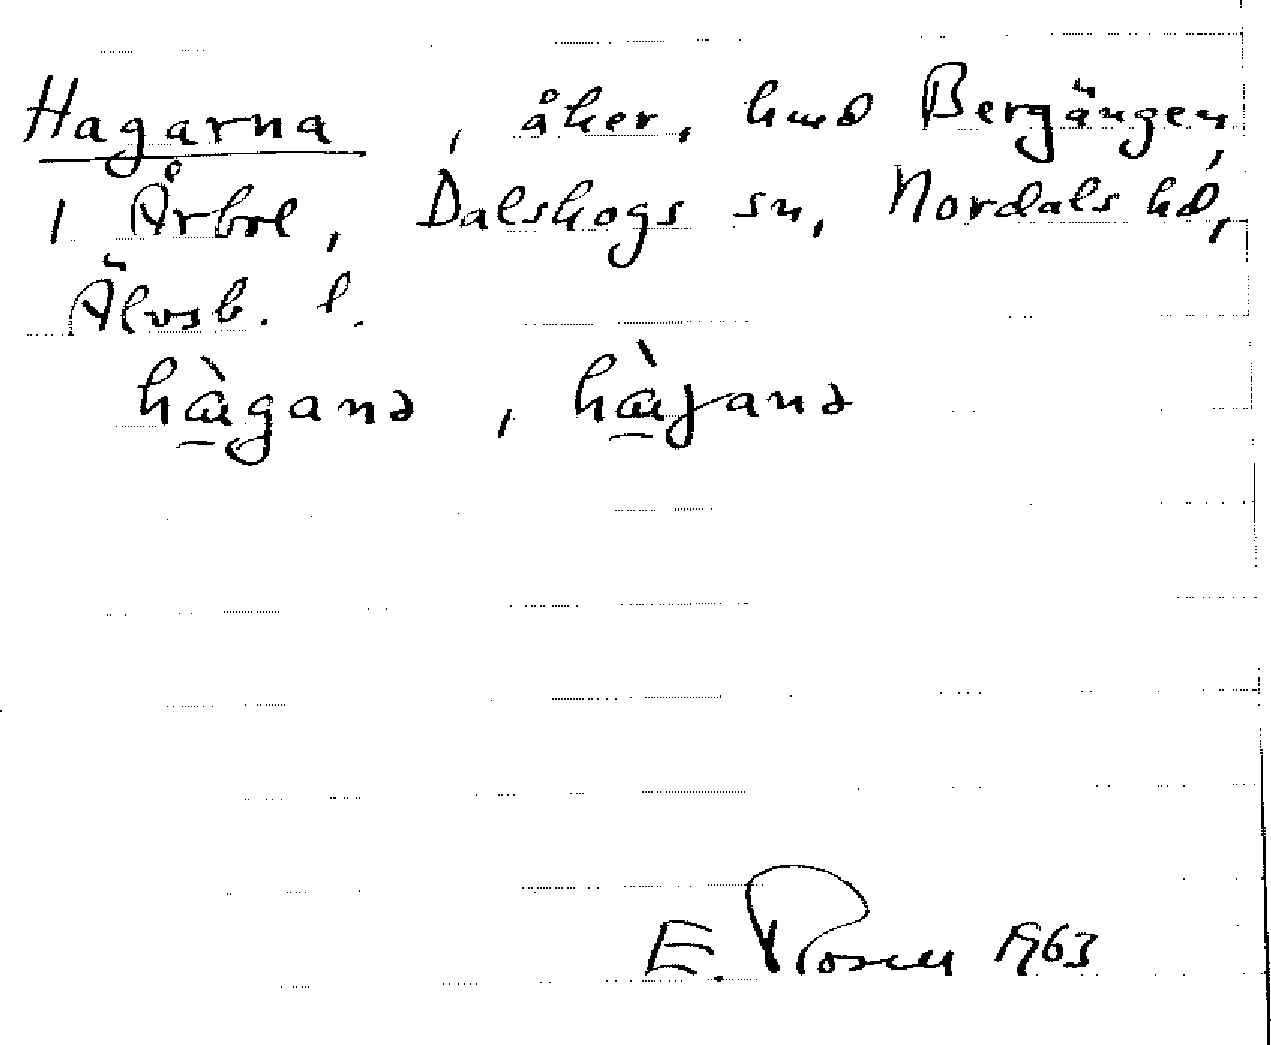 Hagarna, åker, hmd Bergängen,
i Årbol, Dalskogs sn, Nordals hd,
Älvsb. l.
hàganə, hàɣanə
E. Rosell 1963